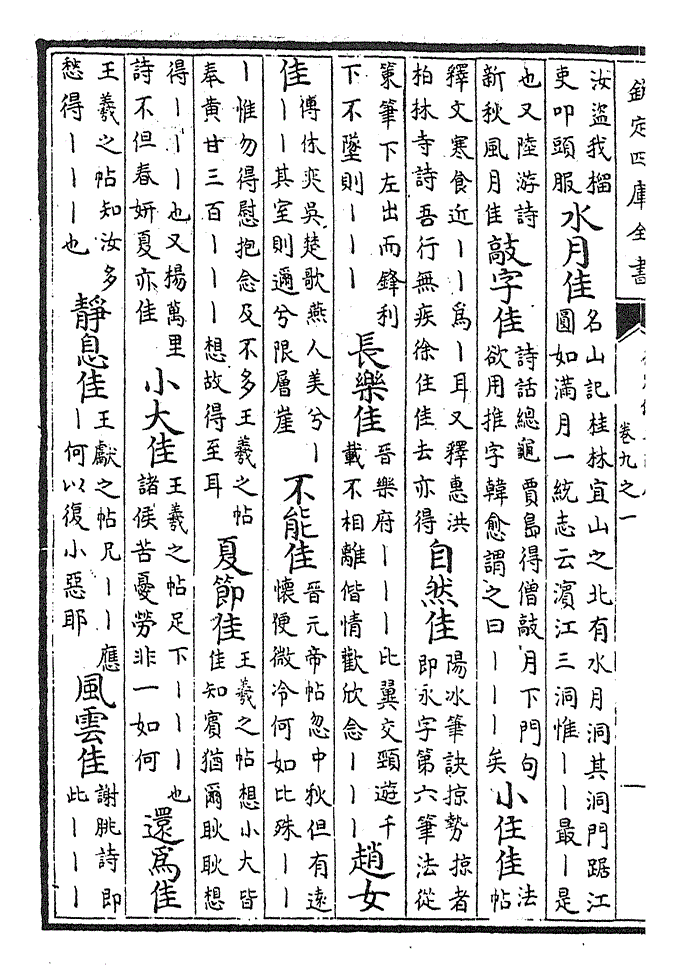 欽定四庫全書
卷九之一
一
汝盜我榴
吏叩頭服
水月佳
名山記桂林宜山之北有水月洞其洞門踞江
圓如滿月一統志云濵江三洞惟丨丨最丨是
也又陸游詩
新秋風月佳
敲字佳
詩話總龜賈島得僧敲月下門句
欲用推字韓愈謂之曰丨丨丨矣
小住佳
法
帖
釋文寒食近丨丨爲丨耳又釋惠洪
柏林寺詩吾行無疾徐住佳去亦得
自然佳
陽冰筆訣掠勢掠者
即永字第六筆法從
策筆下左出而鋒利
下不墜則丨丨丨
長樂佳
晉樂府丨丨丨比翼交頸遊千
載不相離偕情歡欣念丨丨丨
趙女
佳
傅休奕吳楚歌燕人美兮丨
丨丨其室則邇兮限層崖
不能佳
晉元帝帖忽中秋但有遠
懷便微冷何如比殊丨丨
丨惟勿得慰抱念及不多王羲之帖
奉黄甘三百丨丨丨想故得至耳
夏節佳
王羲之帖想小大皆
佳知賓猶爾耿耿想
得丨丨丨也又楊萬里
詩不但春妍夏亦佳
小大佳
王羲之帖足下丨丨丨也
諸侯苦憂勞非一如何
還爲佳
王羲之帖知汝多
愁得丨丨丨也
靜息佳
王獻之帖兄丨丨應
丨何以復小惡耶
風雲佳
謝朓詩即
此丨丨丨